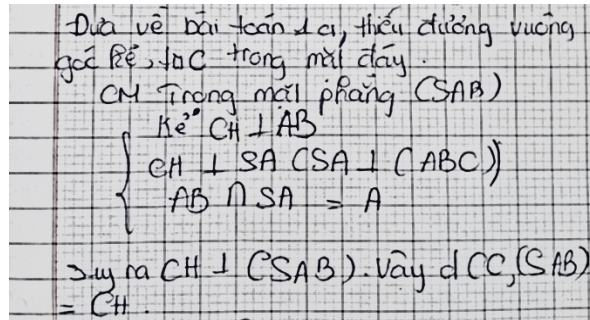 Đưa về bài toán 1 a, thiếu đường vuông
góc kẻ từ C trong mặt đáy.
CM Trong mặt phẳng (SAB)
Kẻ CH ⊥ AB
CH ⊥ SA (SA ⊥ (ABC))
AB ∩ SA = A
Suy ra CH ⊥ (SAB). Vậy d(C,(SAB)
= CH.